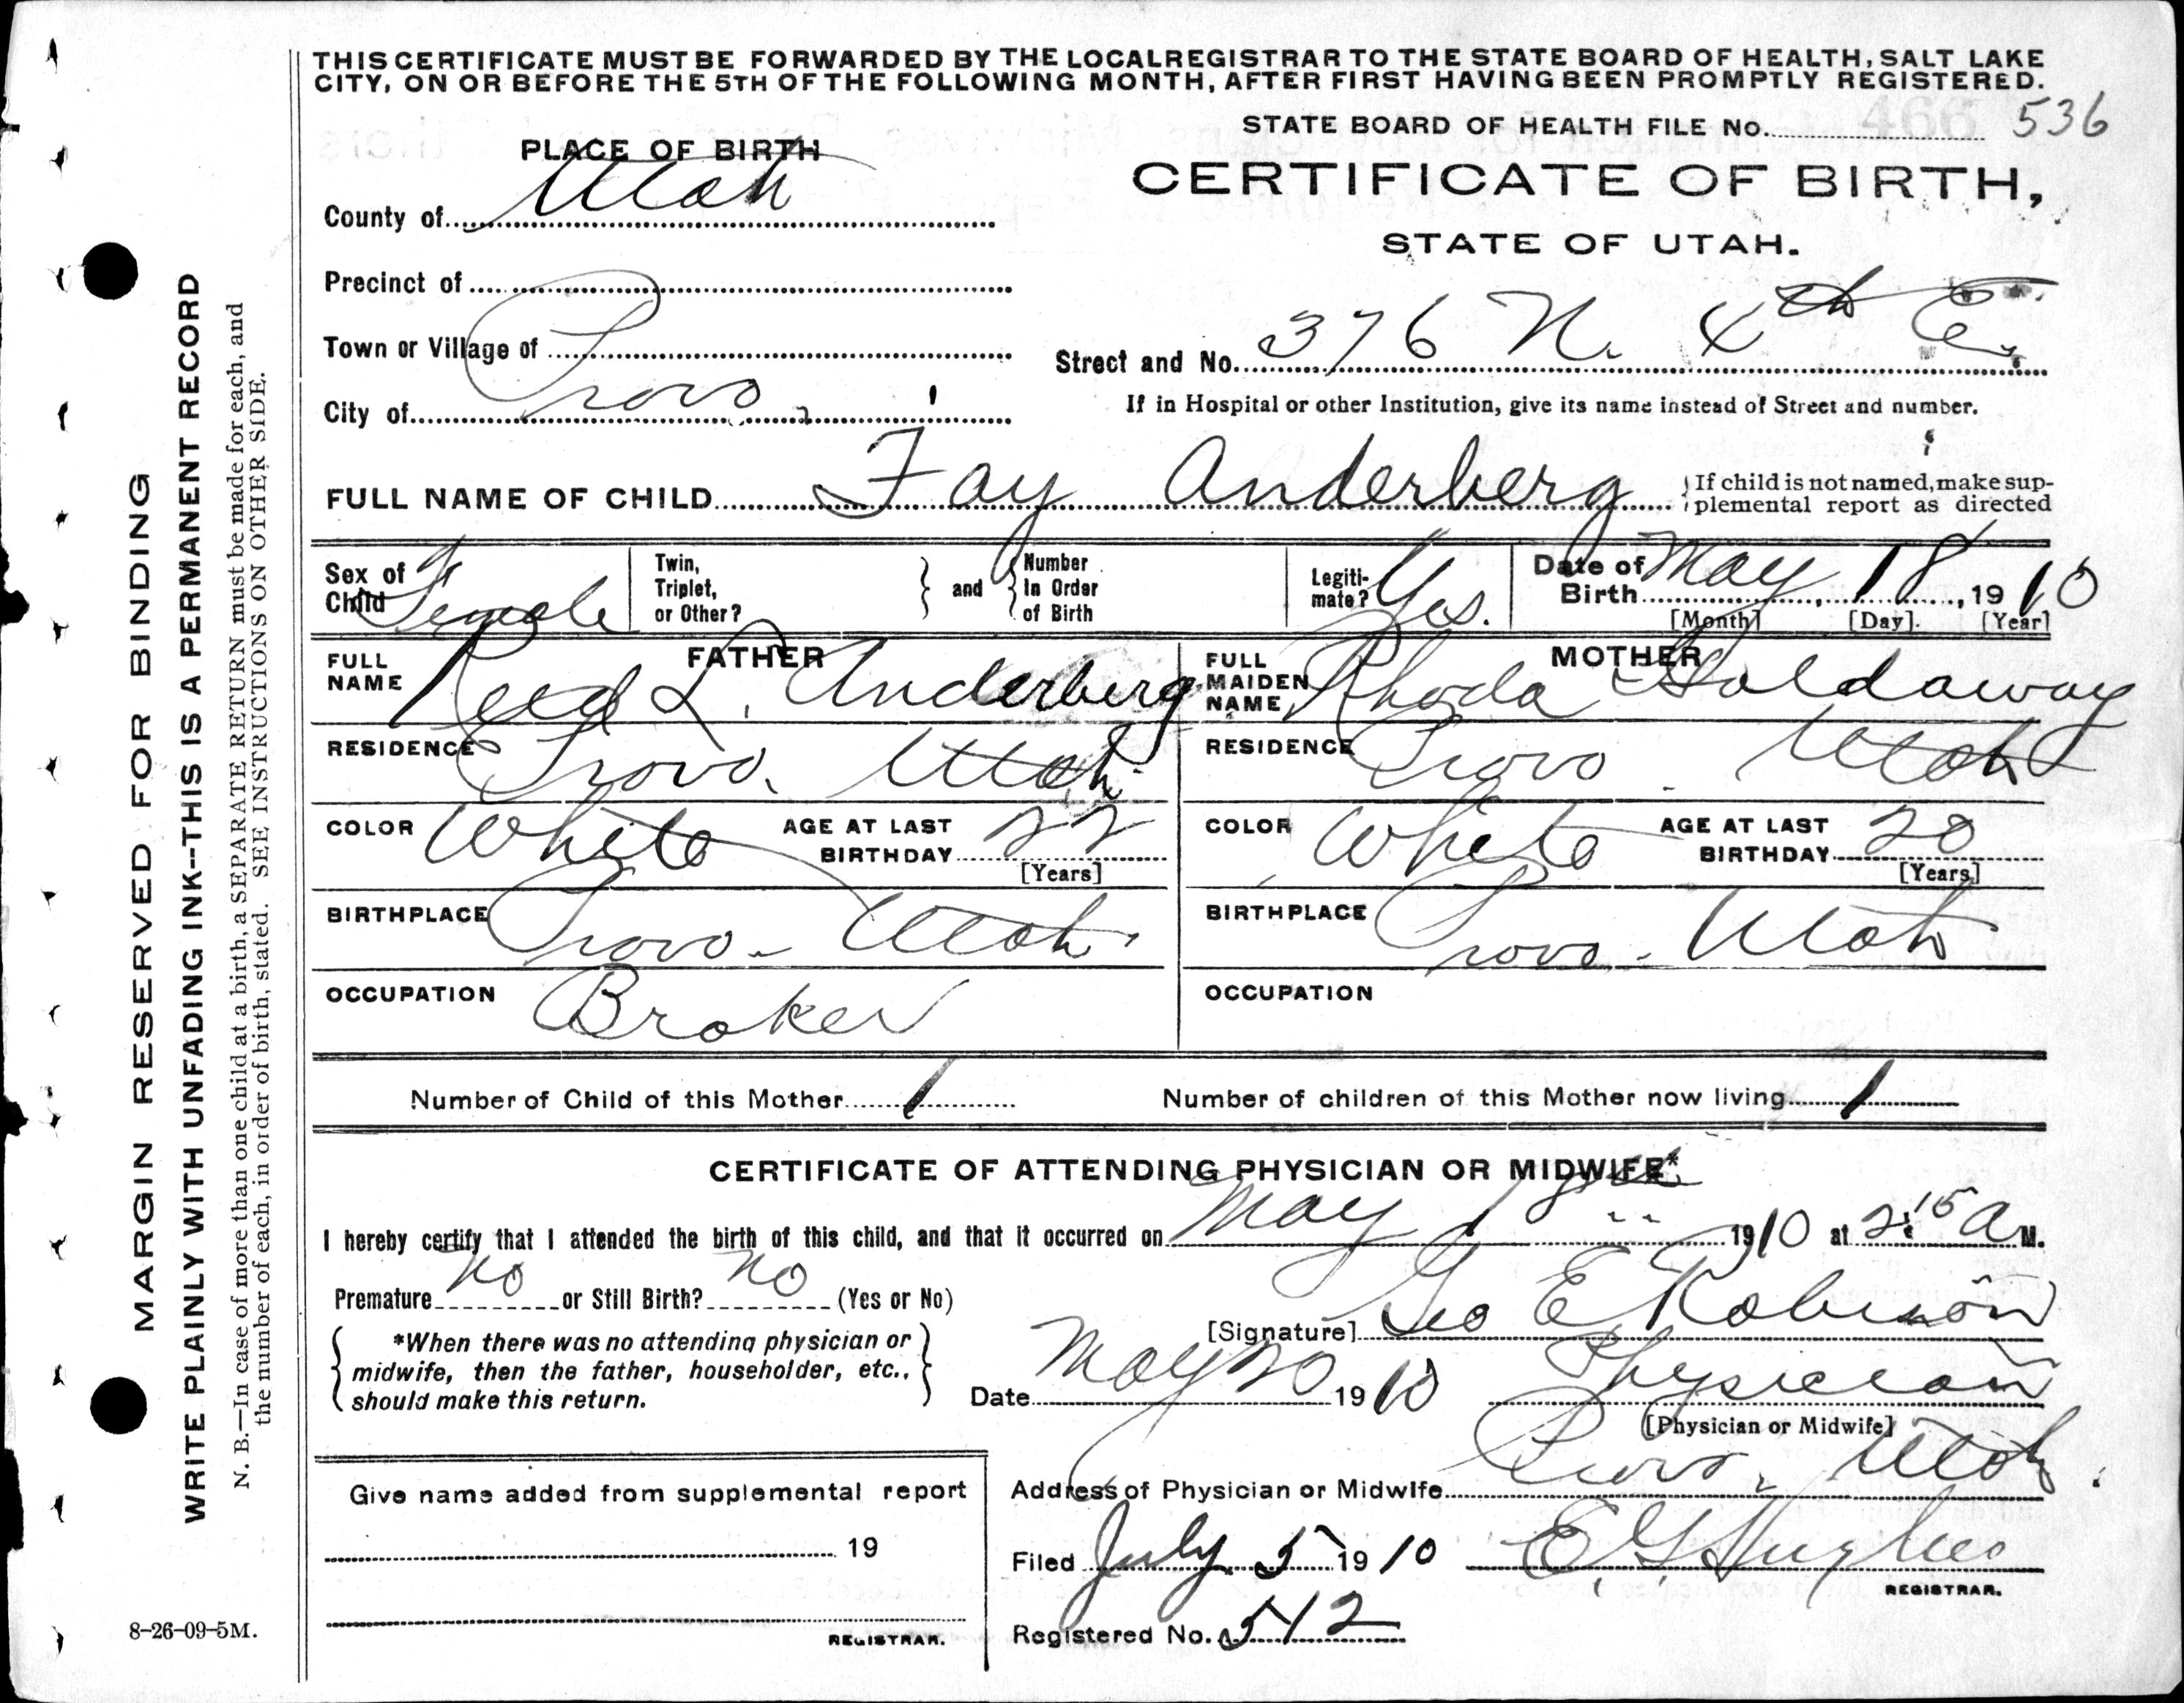 THIS CERTIFICATE MUST BE FORWARDED BY THE LOCAL REGISTRAR TO THE STATE BOARD OF HEALTH, SALT LAKE
CITY, ON OR BEFORE THE 5TH OF THE FOLLOWING MONTH, AFTER FIRST HAVING BEEN PROMPTLY REGISTERED.
STATE BOARD OF HEALTH FILE No. 536
PLACE OF BIRTH
CERTIFICATE OF BIRTH,
STATE OF UTAH.
County of Utah
Precinct of
Town or Village of
City of Provo
Street and No. 376 N. 4th E.
If in Hospital or other Institution, give its name instead of Street and number.
FULL NAME OF CHILD Fay Anderberg
If child is not named, make sup-
plemental report as directed
Sex of Child Female
Twin, Triplet, or Other?
and Number In Order of Birth
Legiti-mate? Yes.
Date of Birth May 18, 1910
[Month] [Day]. [Year]
FATHER
FULL NAME Reed L. Anderberg
RESIDENCE Provo. Utah
COLOR White AGE AT LAST BIRTHDAY 22
[Years]
BIRTHPLACE Provo - Utah
OCCUPATION Broker
MOTHER
FULL MAIDEN NAME Rhoda Holdaway
RESIDENCE Provo. Utah
COLOR White AGE AT LAST BIRTHDAY 20
[Years]
BIRTHPLACE Provo - Utah
OCCUPATION
Number of Child of this Mother 1
Number of children of this Mother now living 1
CERTIFICATE OF ATTENDING PHYSICIAN OR MIDWIFE*
I hereby certify that I attended the birth of this child, and that it occurred on May 18 1910 at 2:15 A M.
Premature No or Still Birth? No (Yes or No)
*When there was no attending physician or
midwife, then the father, householder, etc.,
should make this return.
[Signature] Geo E Robinson
Date May 20 1910
Physician
[Physician or Midwife]
Address of Physician or Midwife Provo, Utah.
Filed July 5 1910 E. G. Hughes
REGISTRAR.
Registered No. 542
Give name added from supplemental report
19
REGISTRAR.
8-26-09-5M.
MARGIN RESERVED FOR BINDING
WRITE PLAINLY WITH UNFADING INK--THIS IS A PERMANENT RECORD
N. B.—In case of more than one child at a birth, a SEPARATE RETURN must be made for each, and
the number of each, in order of birth, stated. SEE INSTRUCTIONS ON OTHER SIDE.